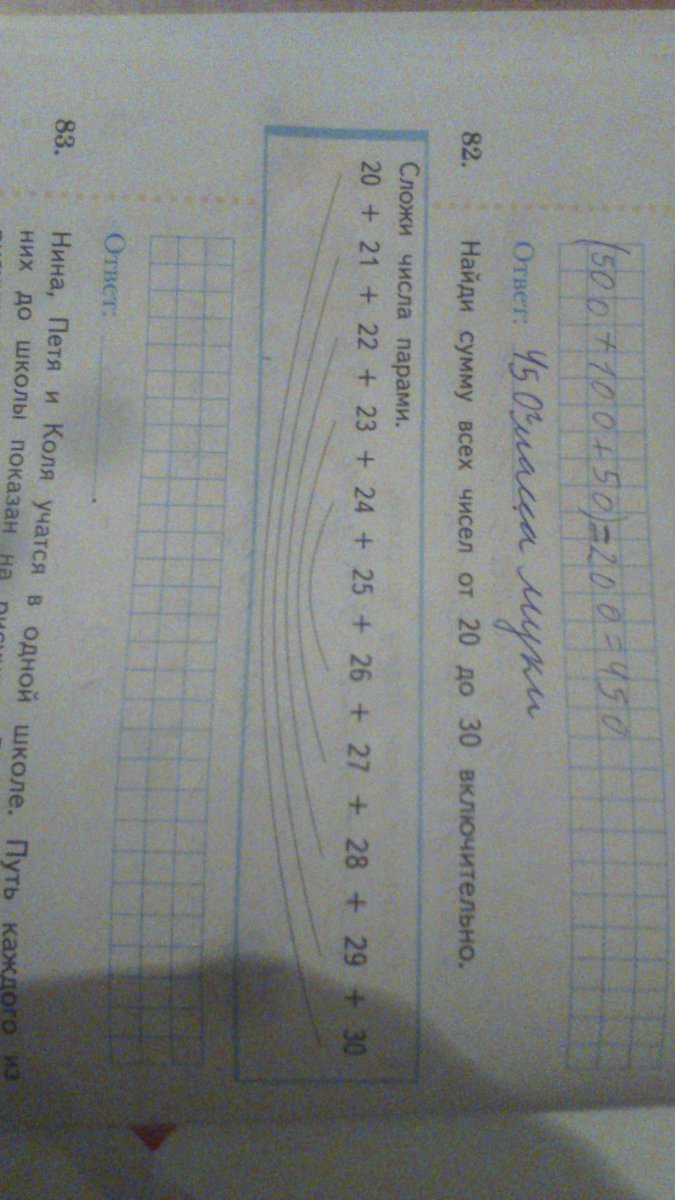 (500+100+50)=200=450
Ответ: 450 масса муки
82. Найди сумму всех чисел от 20 до 30 включительно.
Сложи числа парами.
20 + 21 + 22 + 23 + 24 + 25 + 26 + 27 + 28 + 29 + 30
Ответ:
83. Нина, Петя и Коля учатся в одной школе. Путь каждого из
них до школы показан на